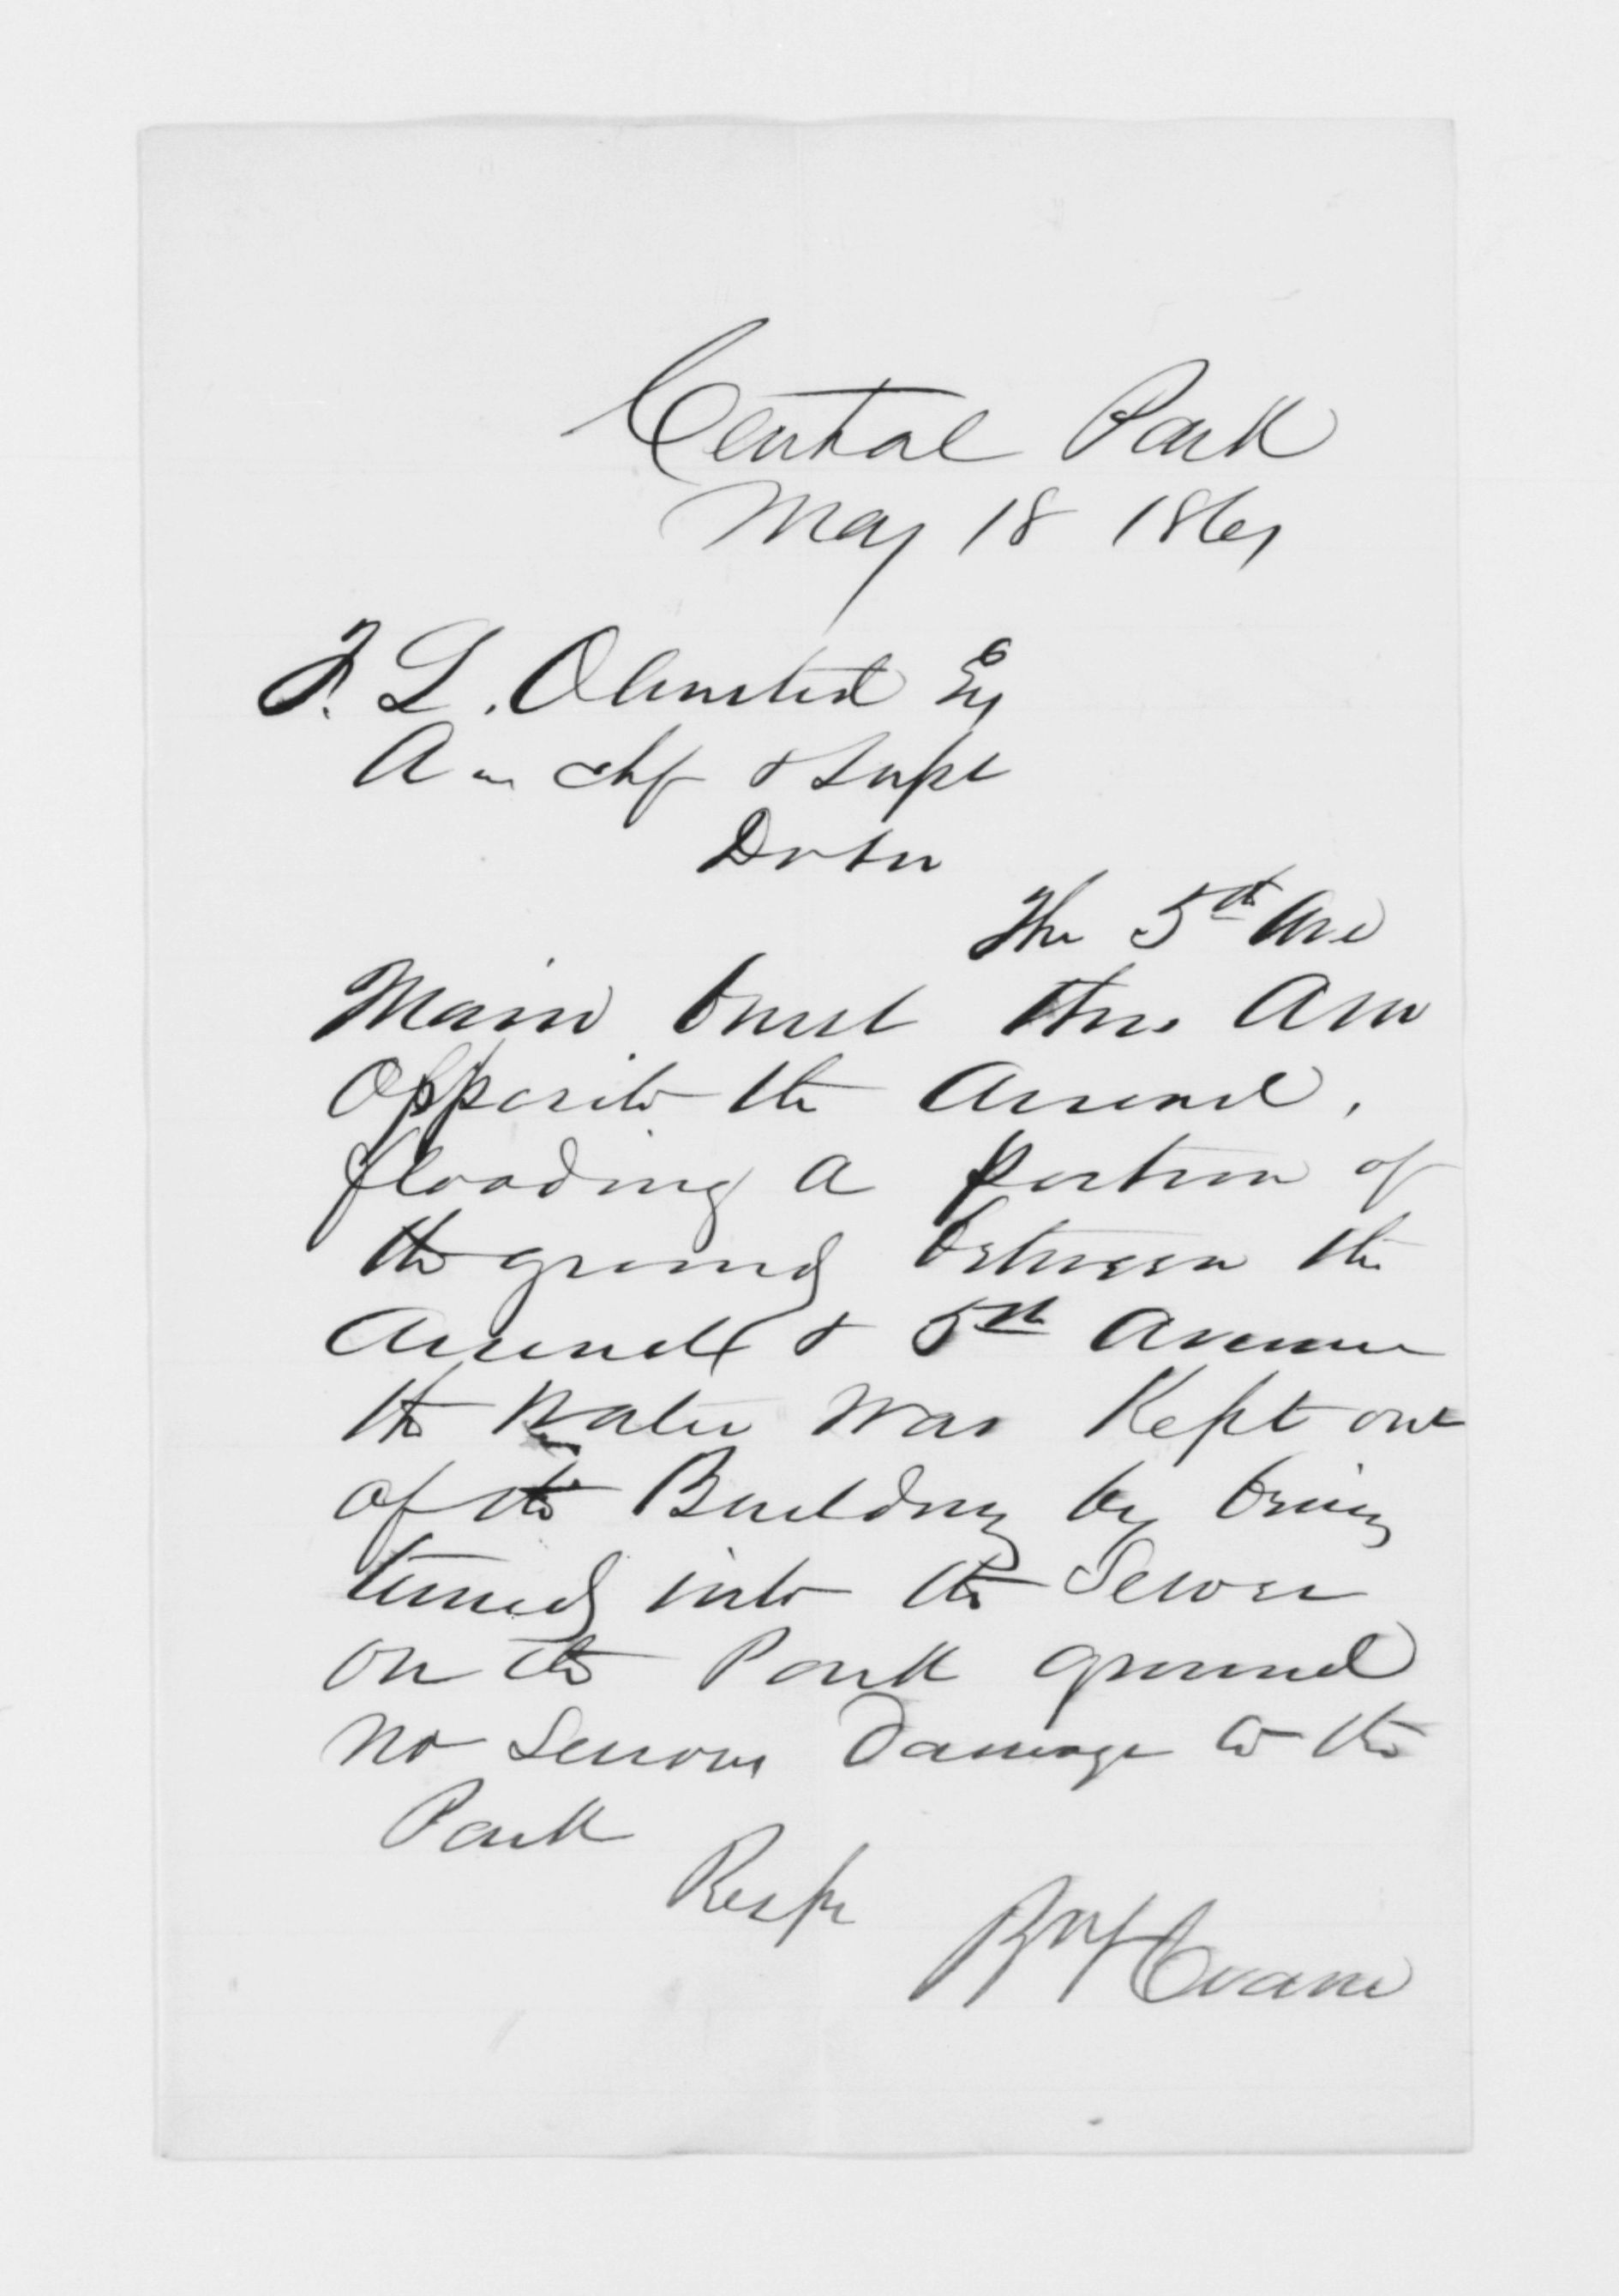 Central Park
May 18 1861
F. L. Olmsted Esq
A in Chf & Supt
Dr Sir
The 5th Ave
Main burst this A M
Opposite the Arsenal,
flooding a portion of
the ground between the
Arsenal & 5th Avenue
the Water was Kept out
of the Building by being
turned into the Sewer
on the Park ground
no Serious Damage to the
Park
Resp
Evans